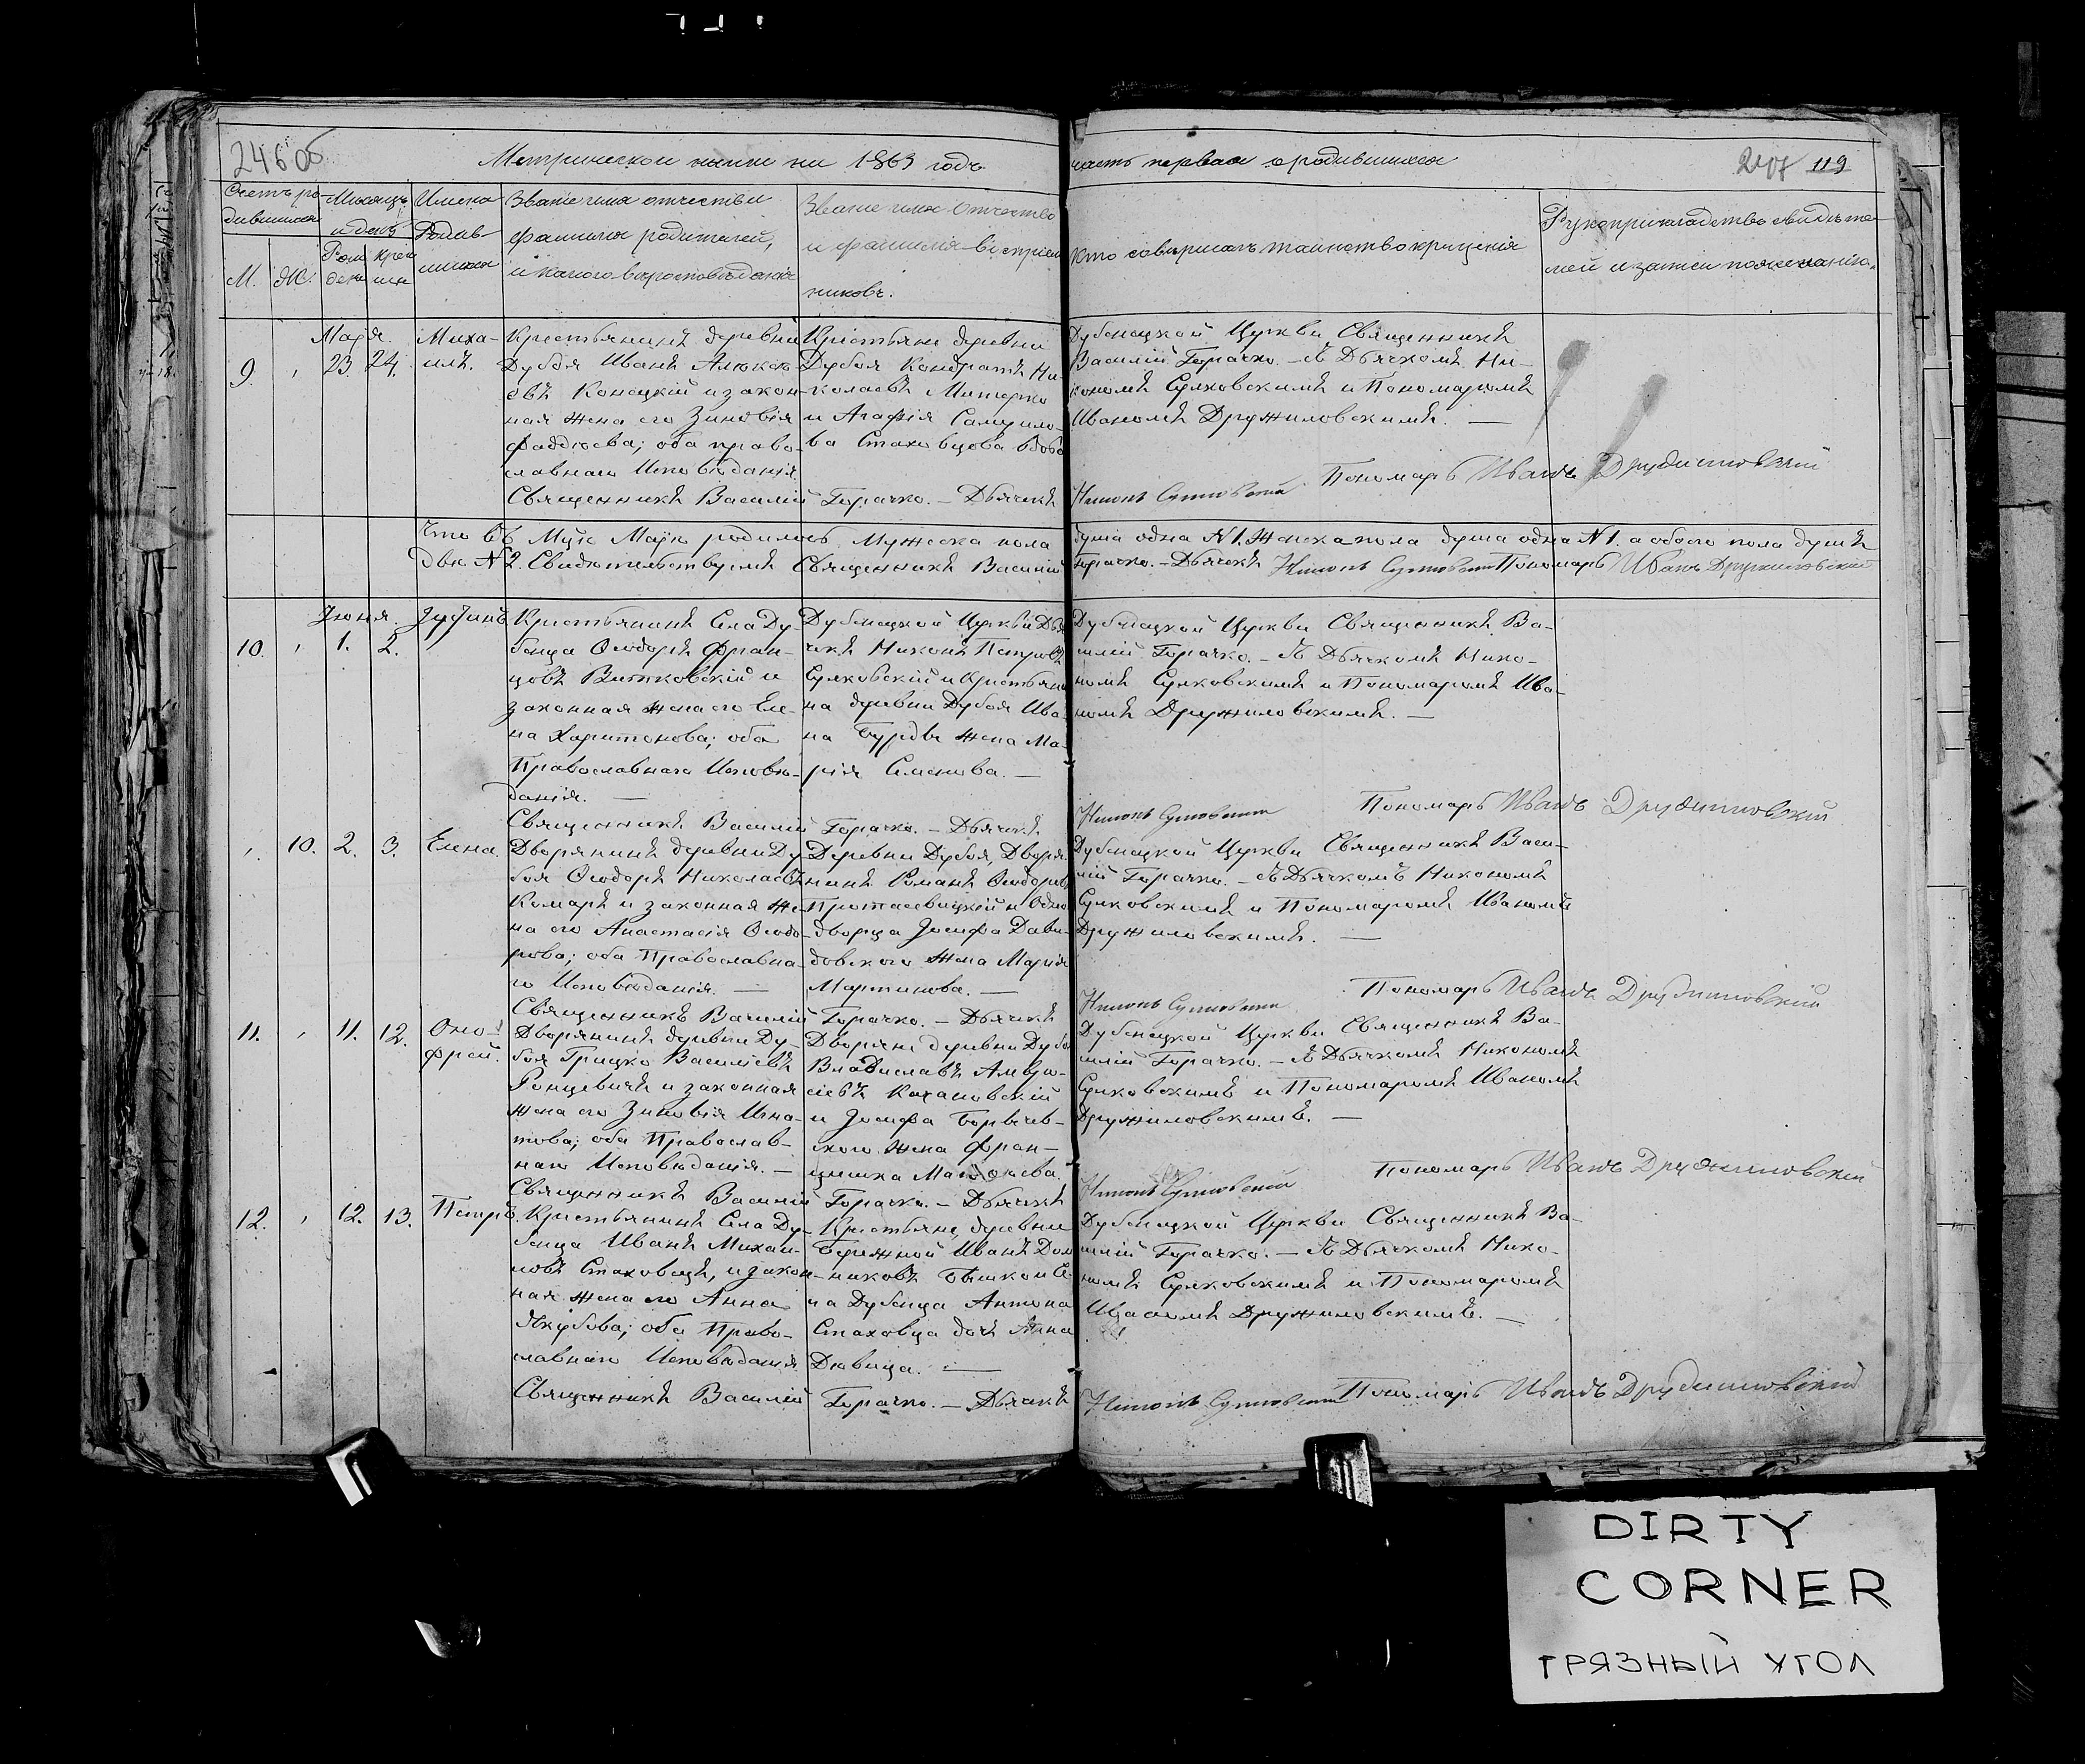 246 об
Метрической книги на 1863 годъ
часть первая о родившихся
119
Счетъ ро-
дившихся
М.
Ж.
Мѣсяцъ
и день
Рож
денія
Кре
щен
Имена
Родив-
шихся
Званіе имя отчество и
фамилія родителей,
и какого вѣроисповѣданія
Званіе имя отчество
и фамилія воспріем
никовъ.
Кто совершалъ таинство крещенія
Рукоприкладство свидѣте-
лей и записи по желанію.
9.
Маія.
23. 24.
Миха-
илъ.
Крестьянинъ деревни
Дубоя Иванъ Алексѣ-
евъ Конецкій и закон-
ная жена его Зиновія
Фаддѣева; оба право-
славнаго Исповѣданія
Священникъ Василій
Крестьяне деревни
Дубоя Кондратъ Ни-
колаевъ
и Агафія Самуило-
ва Стаховцова вдова
Горачко. — Дьячекъ
Дубенецкой Церкви Священникъ
Василій Горачко. — Съ Дьячкомъ Ни-
кономъ Сулковскимъ и Пономаремъ
Иваномъ Дружиловскимъ. —
Никонъ Сулковскій Пономарь Иванъ Дружиловскій
Что въ Мцѣ Маѣ родилось Мужеска пола
душа одна N1. Женска пола душа одна N1. а обоего пола душъ
двѣ N2. Свидѣтельствуемъ Священникъ Василій
Горачко. — Дьячекъ Никонъ Сулковскій Пономарь Иванъ Дружиловскій
10.
Іюня.
1. 2.
Іустинъ
Крестьянинъ Села Ду-
бенца Ѳеодоръ Фран-
цовъ Витковскій и
законная жена его Еле-
на Харитонова; оба
Православнаго Исповѣ-
данія. —
Священникъ Василій
Дубенецкой Церкви Дья
чекъ Никонъ Петровъ
Сулковскій и Крестьяни
на деревни Дубоя Ива-
на Бурды жена Ма-
рія Семенова. —
Горачко. — Дьячекъ
Дубенецкой Церкви Священникъ Ва-
силій Горачко. — Съ Дьячкомъ Нико-
номъ Сулковскимъ и Пономаремъ Ива-
номъ Дружиловскимъ. —
Никонъ Сулковскій Пономарь Иванъ Дружиловскій
10. 2. 3.
Елена.
Дворянинъ деревни Ду-
боя Ѳеодоръ Николаевъ
Комаръ и законная же-
на его Анастасія Ѳеодо-
рова; оба Православна-
го Исповѣданія. —
Священникъ Василій
Деревни Дубоя, Дворя-
нинъ Романъ Ѳеодоровъ
Протасевицкій и Одно-
дворца Іосифа Дави-
довскаго жена Марія
Мартинова. —
Горачко. — Дьячекъ
Дубенецкой Церкви Священникъ Васи-
лій Горачко. — Съ Дьячкомъ Никономъ
Сулковскимъ и Пономаремъ Иваномъ
Дружиловскимъ. —
Никонъ Сулковскій Пономарь Иванъ Дружиловскій
11. 11. 12.
Оно-
фрей.
Дворянинъ деревни Ду-
боя Грицко Василіевъ
Ронцевичъ и законная
жена его Зиновія Игна-
това; оба Православ-
наго Исповѣданія. —
Священникъ Василій
Дворяне деревни Дубоя
Владиславъ
Кахановскій
и Іосифа
скаго жена Фран-
цишка
Горачко. — Дьячекъ
Дубенецкой Церкви Священникъ Ва-
силій Горачко. — Съ Дьячкомъ Никономъ
Сулковскимъ и Пономаремъ Иваномъ
Дружиловскимъ. —
Никонъ Сулковскій Пономарь Иванъ Дружиловскій
12. 12. 13.
Петръ.
Крестьянинъ Села Ду-
бенца Иванъ Михаи-
ловъ Стаховецъ, и закон-
ная жена его Анна
Якубова; оба Право-
славнаго Исповѣданія
Священникъ Василій
Крестьяне, деревни
Бережной Иванъ Дом
никовъ Бышко и Се-
ла Дубенца Антона
Стаховца дочь Анна
Дѣвица. —
Горачко. — Дьячекъ
Дубенецкой Церкви Священникъ Ва-
силій Горачко. — Съ Дьячкомъ Нико-
номъ Сулковскимъ и Пономаремъ
Иваномъ Дружиловскимъ. —
Никонъ Сулковскій Пономарь Иванъ Дружиловскій
DIRTY
CORNER
ГРЯЗНЫЙ УГОЛ